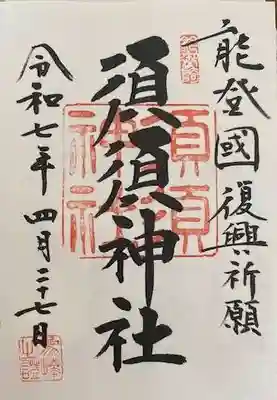 能登國復興祈願
須須神社
須須
神社
令和七年四月二十七日